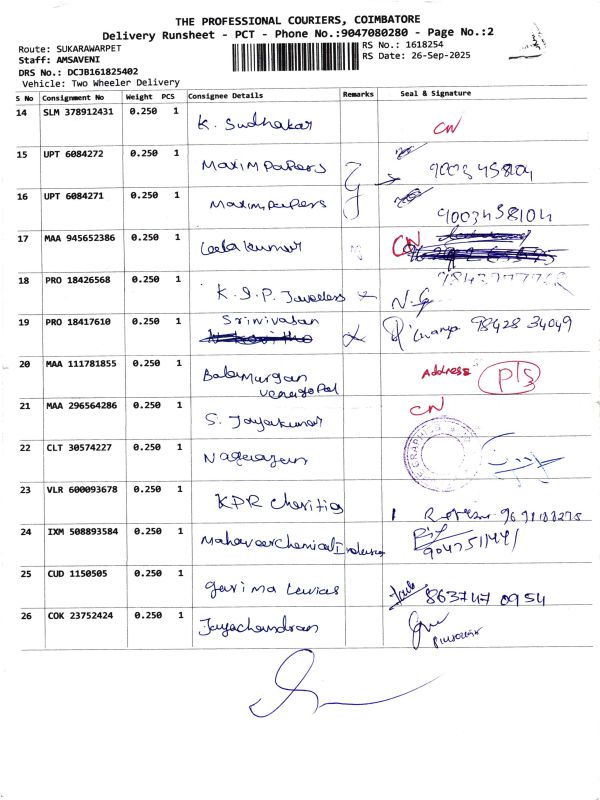 THE PROFESSIONAL COURIERS, COIMBATORE
Delivery Runsheet - PCT - Phone No.:9047080280 - Page No.:2
Route: SUKARAWARPET
RS No.: 1618254
Staff: AMSAVENI
RS Date: 26-Sep-2025
DRS No.: DCJB161825402
Vehicle: Two Wheeler Delivery
S No Consignment No Weight PCS Consignee Details Remarks Seal & Signature
14 SLM 378912431 0.250 1 K. Sudhakar CN
15 UPT 6084272 0.250 1 Maxim Papers
16 UPT 6084271 0.250 1 Maxim Papers 9003458104
17 MAA 945652386 0.250 1 CN
18 PRO 18426568 0.250 1 K.I.P. Jewellers
19 PRO 18417610 0.250 1 Srinivasan 98428 34049
20 MAA 111781855 0.250 1 Balamurgan Venugopal Address P/S
21 MAA 296564286 0.250 1 S. Jayakumar CN
22 CLT 30574227 0.250 1 Nagarajan
23 VLR 600093678 0.250 1 KPR Charities
24 IXM 508893584 0.250 1 Mahaveer Chemical
25 CUD 1150505 0.250 1 863747 0954
26 COK 23752424 0.250 1 Jayachandran